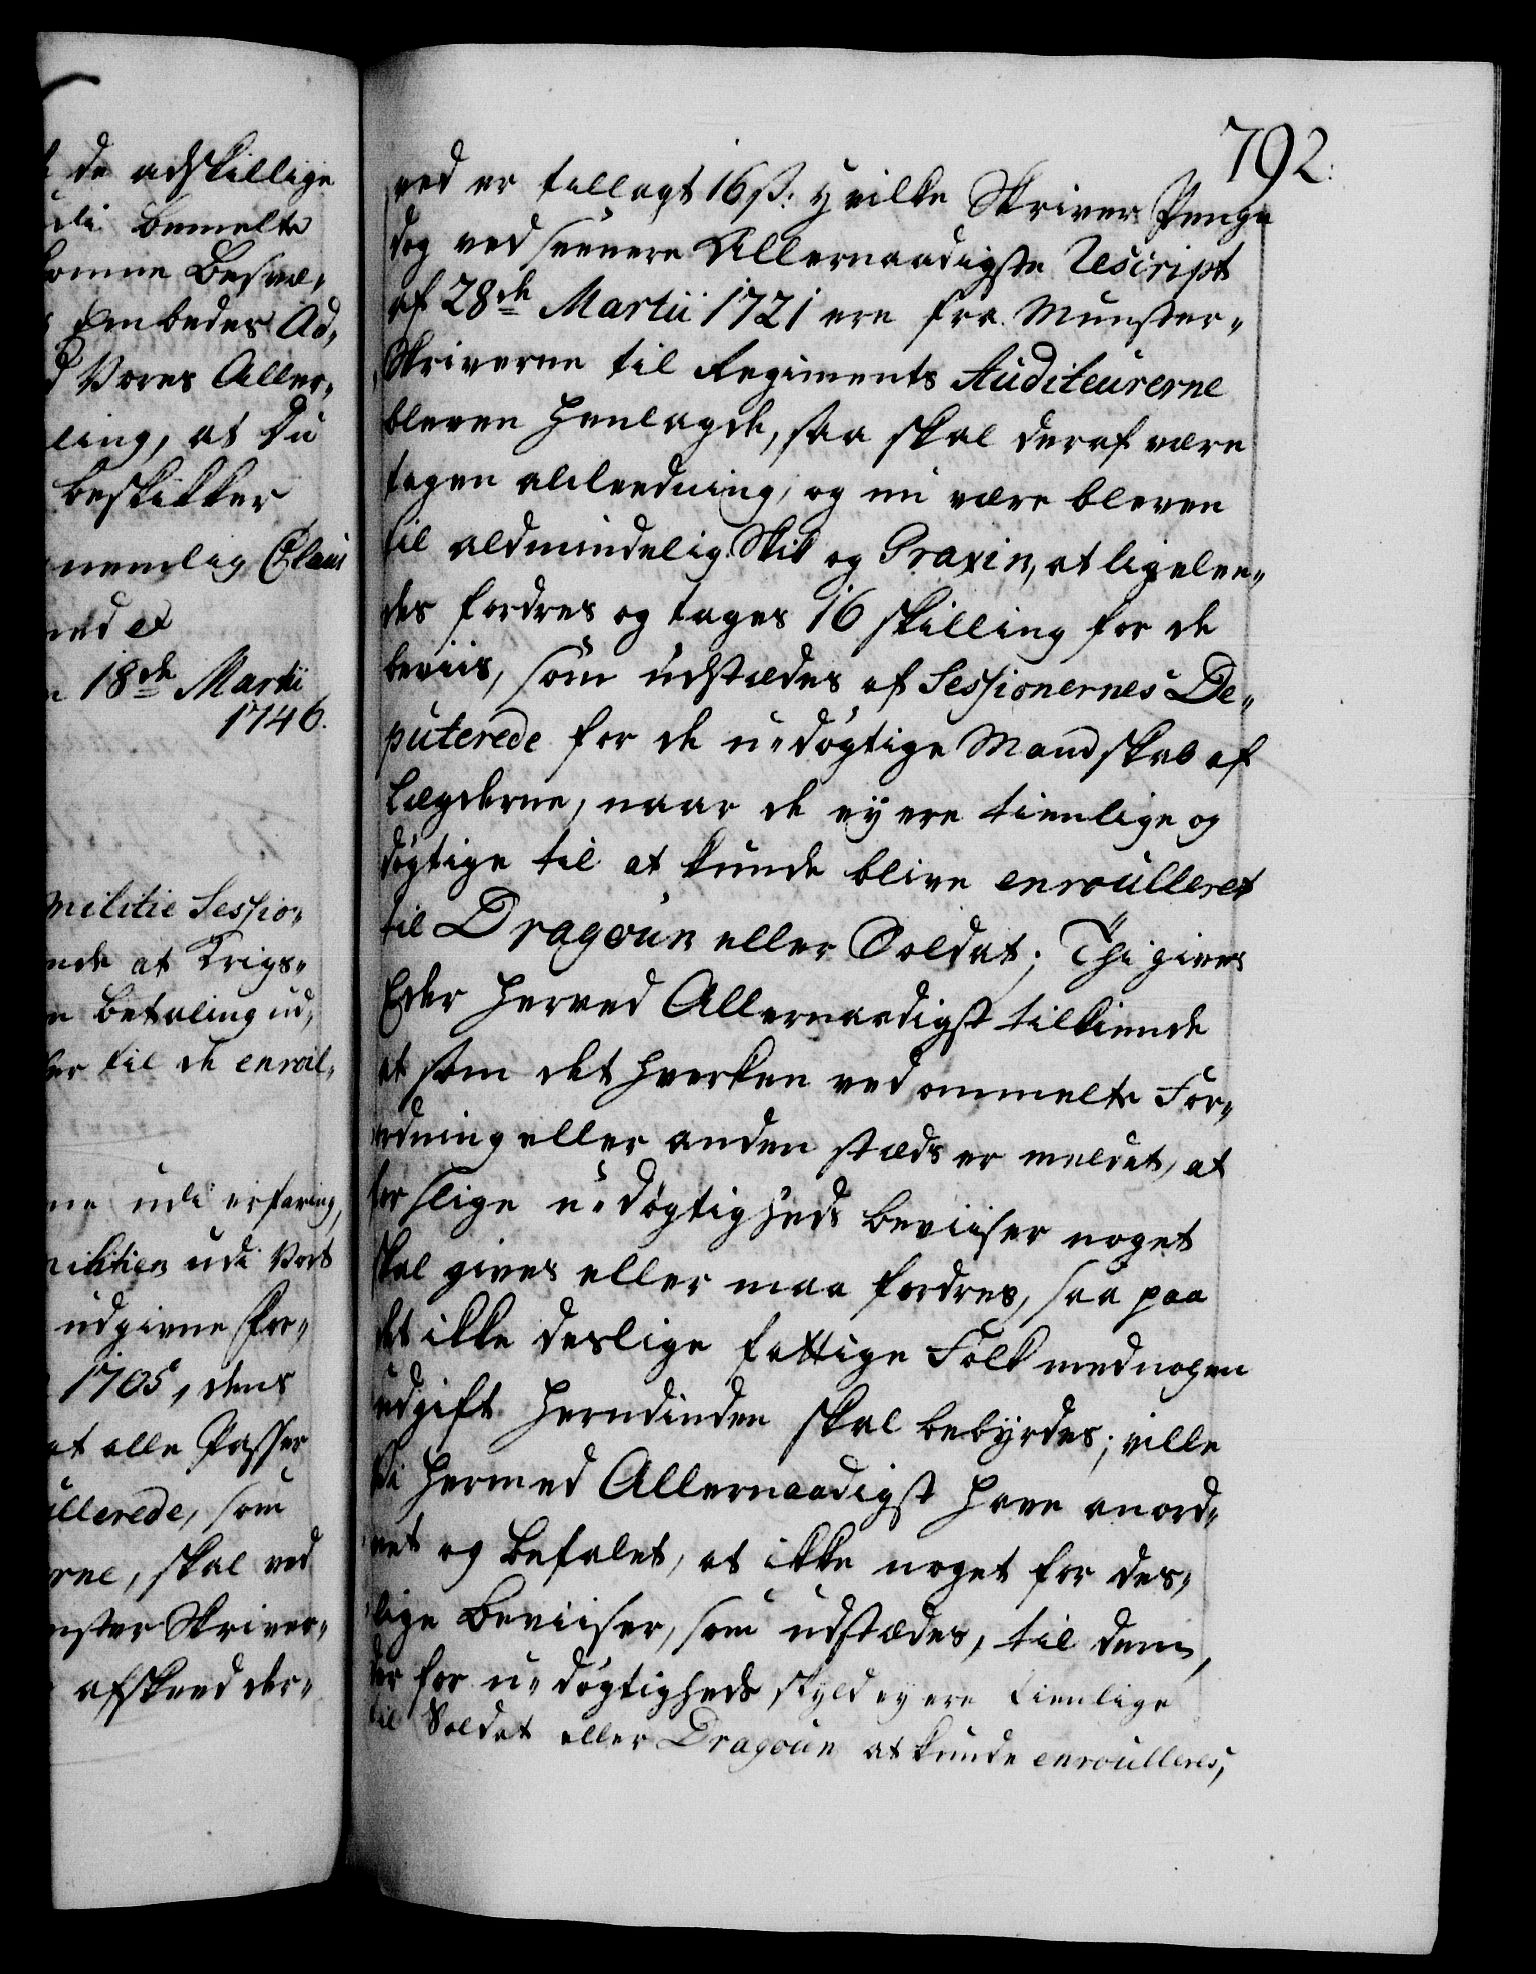 de adskillige
udi bemelte
komne Besvæ„
Embedes Ad„
Vores Aller„
ling, at Du
beskikker
nemlig Claus
med et
18de Martii
1746.
Militie Sessio„
ende at Krigs„
betaling ud„
til de enroul„
udi erfaring,
militien udi Vort
udgivne For„
1705, dens
at alle Passer
ullerede, som
erne, skal ved
ynster Skriver„
afskeed der„
792.
ved er tillagt 16 ß: hvilke Skriver Penge
dog ved seenere Allernaadigste Rescript
af 28de Martii 1721 ere fra Munster„
Skriverne til Regiments Auditeurerne
bleven henlagde, saa skal deraf være
tagen alleedning, og nu være bleven
til aldmindelig Skik og Praxin, at ligelee„
des fordres og tages 16 skilling for de
beviis, som udstædes af Sessionernes De„
puterede for de u„døgtige Mandskab af
Lægderne, naar de ey ere tienlige og
døgtige til at kunde blive enroulleret
til Dragoun eller Soldat; Thi gives
Eder herved Allernaadigst tilkiende
at som det hverken ved ommelte For„
ordning eller anden stæds er meldet, at
for slige u„døgtigheds beviiser noget
skal gives eller maa fordres, saa paa
det ikke deslige fattige Folk med nogen
udgift herudinden skal bebyrdes; ville
Vi hermed Allernaadigst have anord„
net og befalet, at ikke noget for des„
lige Beviiser, som udstædes, til dem,
der for u„døgtigheds skyld ey ere tienlige
til Soldat eller Dragoun at kunde enroulleres,